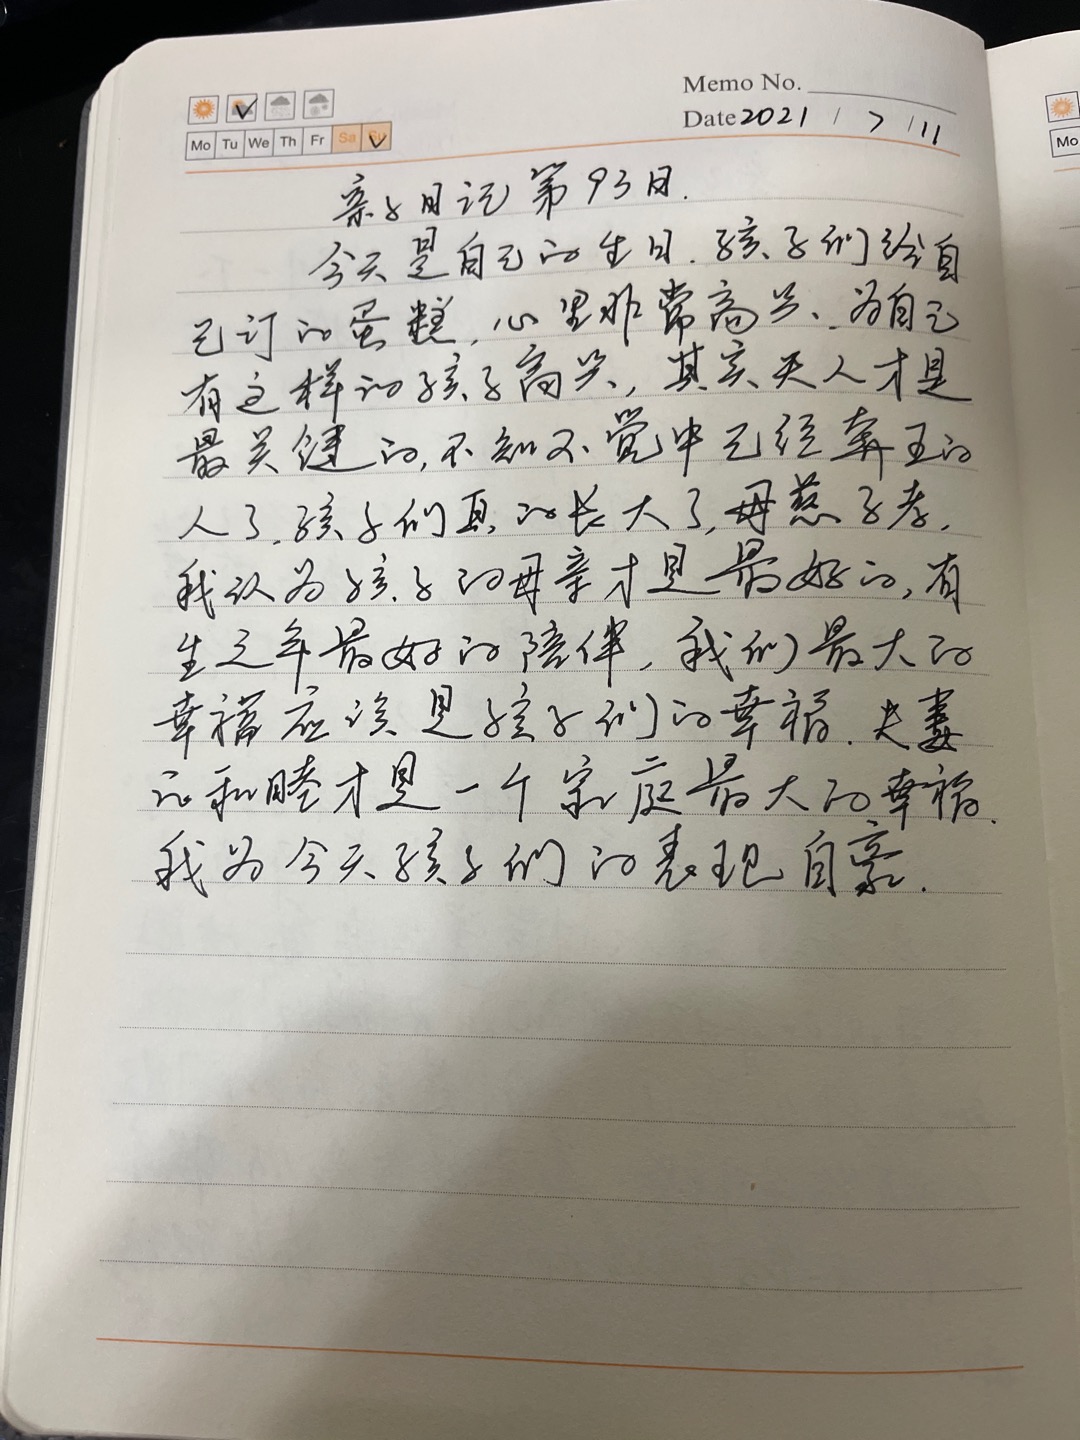 Memo No.
Date 2021 / 7 / 11
Mo Tu We Th Fr Sa Su
亲子日记第93日.
今天是自己的生日.孩子们给自
己订的蛋糕,心里非常高兴、为自己
有这样的孩子高兴,其实夫人才是
最关键的,不知不觉中已经奔五的
人了.孩子们真的长大了,母慈子孝,
我认为孩子的母亲才是最好的,有
生之年最好的陪伴,我们最大的
幸福应该是孩子们的幸福.夫妻
的和睦才是一个家庭最大的幸福.
我为今天孩子们的表现自豪.
Mo